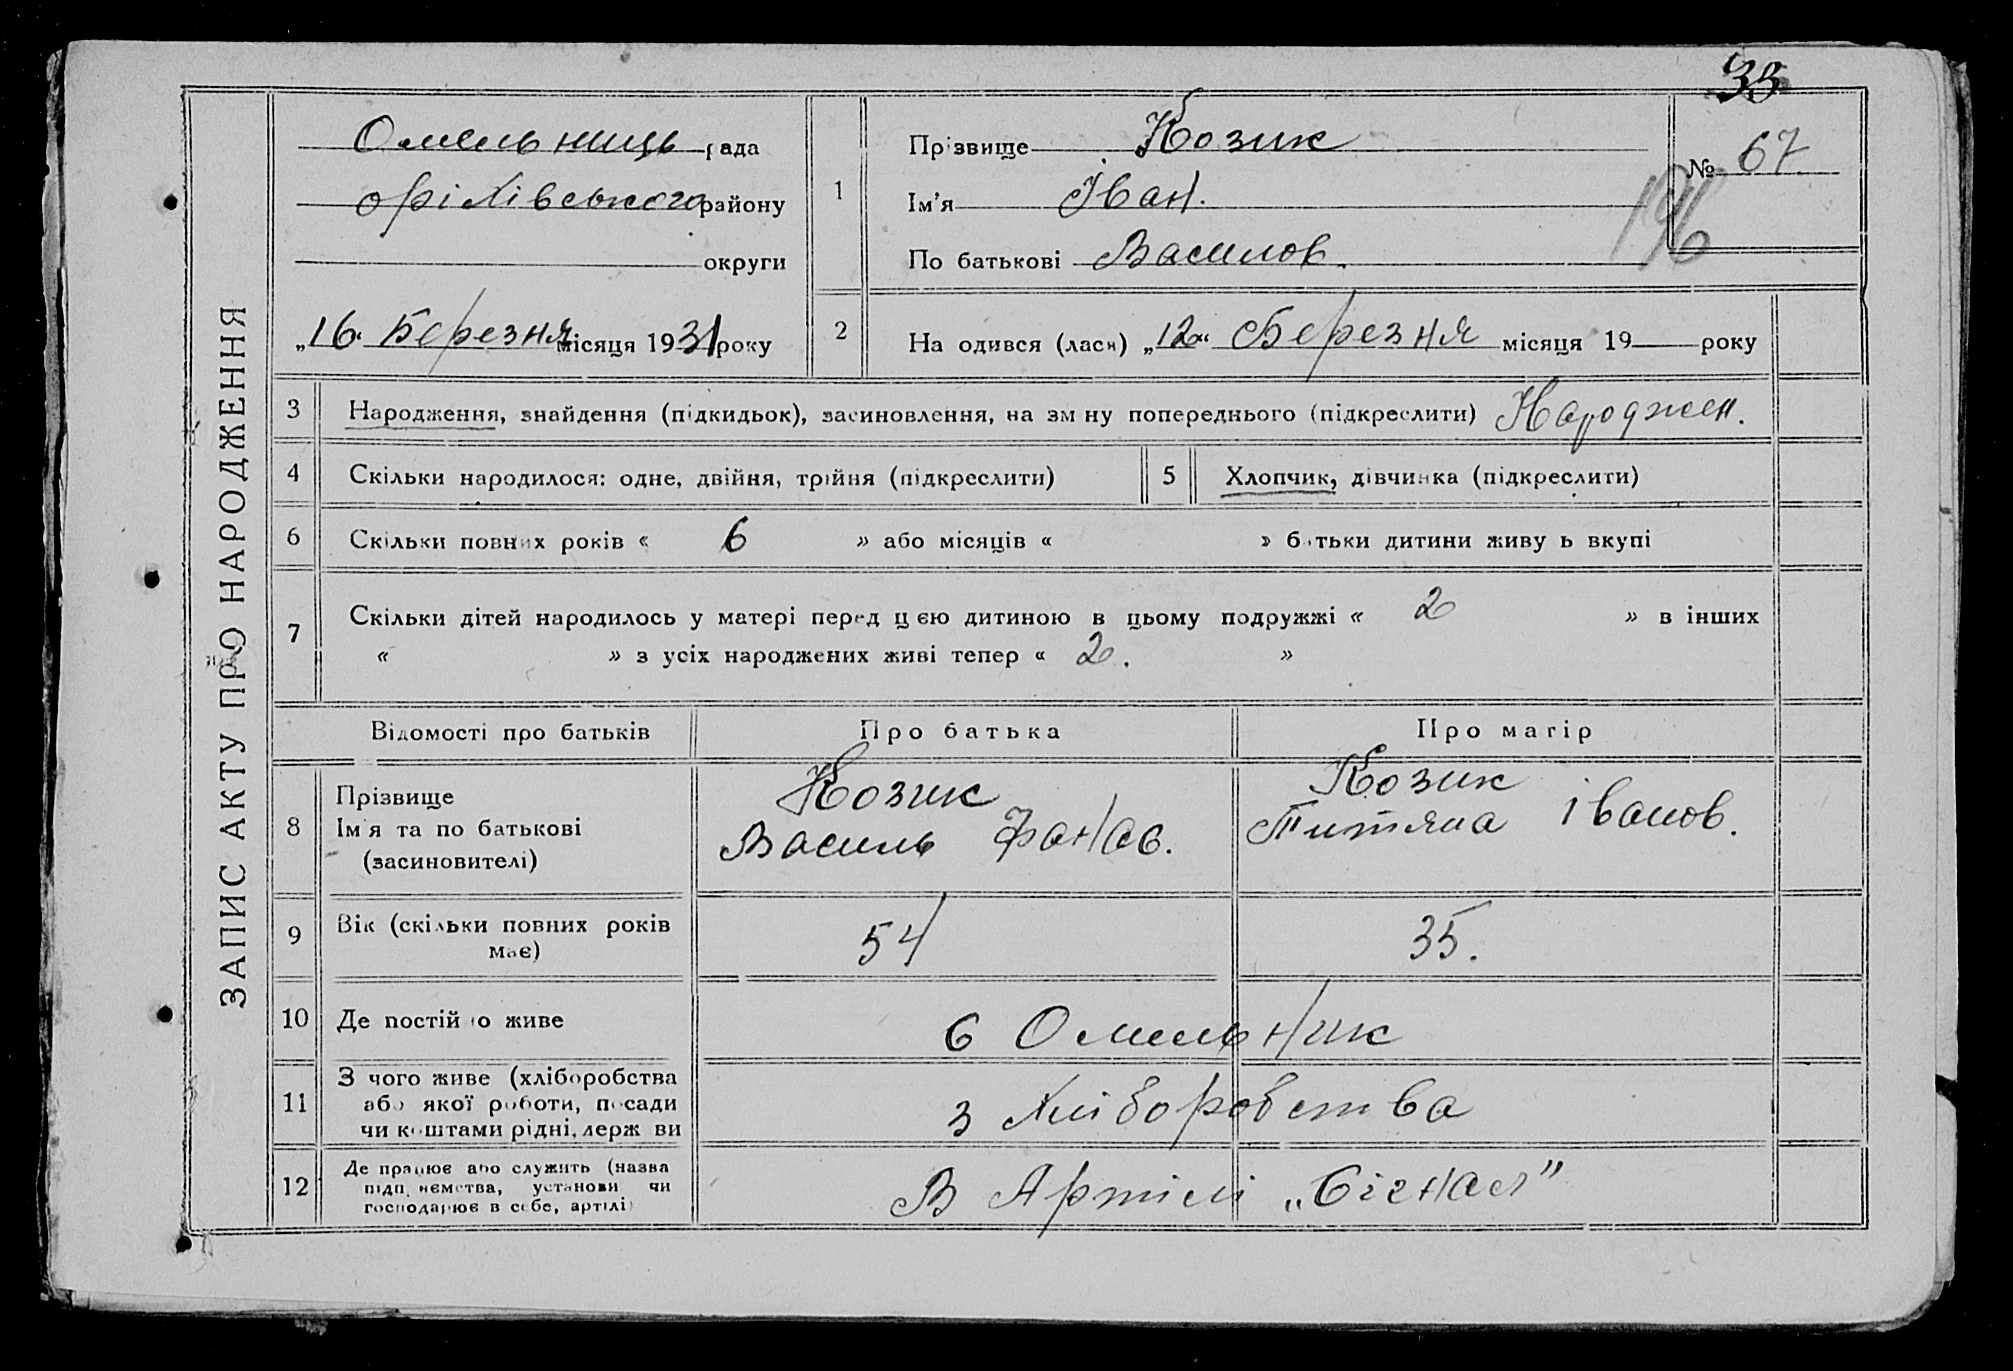 35
ЗАПИС АКТУ ПРО НАРОДЖЕННЯ
Омельниць рада
оріхівського району
округи
„16“ Березня місяця 1931 року
1
Прізвище Козик
Ім'я Іван.
По батькові Василов.
№ 67.
196
2
На одився (лася) „12“ Березня місяця 19 року
3 Народження, знайдення (підкидьок), засиновлення, на зм ну попереднього (підкреслити) Народжен.
4 Скільки народилося: одне, двійня, трійня (підкреслити) 5 Хлопчик, дівчинка (підкреслити)
6 Скільки повних років « 6 » або місяців « » батьки дитини живу ь вкупі
7 Скільки дітей народилось у матері перед цею дитиною в цьому подружжі « 2 » в інших
« » з усіх народжених живі тепер « 2. »
Відомості про батьків Про батька Про матір
8 Прізвище
Ім'я та по батькові
(засиновителі)
Козик
Василь Фанас.
Козик
Титяна Іванов.
9 Вік (скільки повних років
має)
54 35.
10 Де постійно живе
с Омельник
11 З чого живе (хліборобства
або якої роботи, посади
чи коштами рідні, держ ви
з Хліборобства
12 Де працює або служить (назва
підп иємства, установи чи
господарює в себе, артілі)
В Артілі „Сігнал”